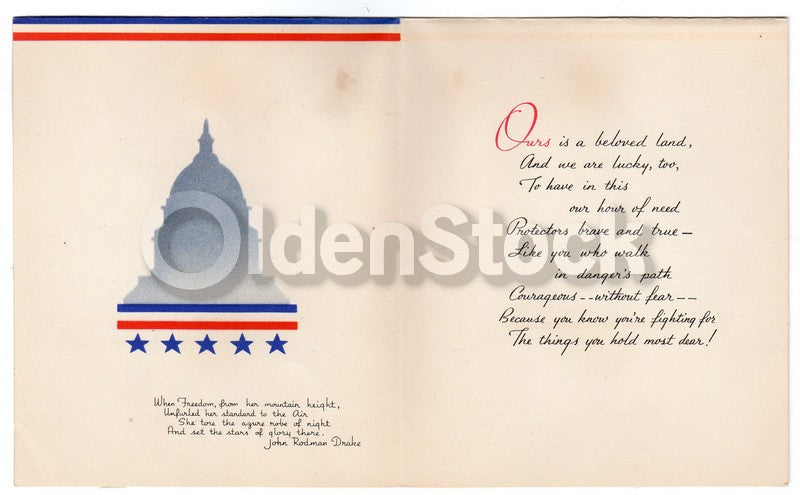 When Freedom, from her mountain height,
Unfurled her standard to the Air
She tore the azure robe of night
And set the stars of glory there.
John Rodman Drake
Ours is a beloved land,
And we are lucky, too,
To have in this
our hour of need
Protectors brave and true—
Like you who walk
in danger's path
Courageous--without fear--
Because you know you're fighting for
The things you hold most dear!
OldenStock